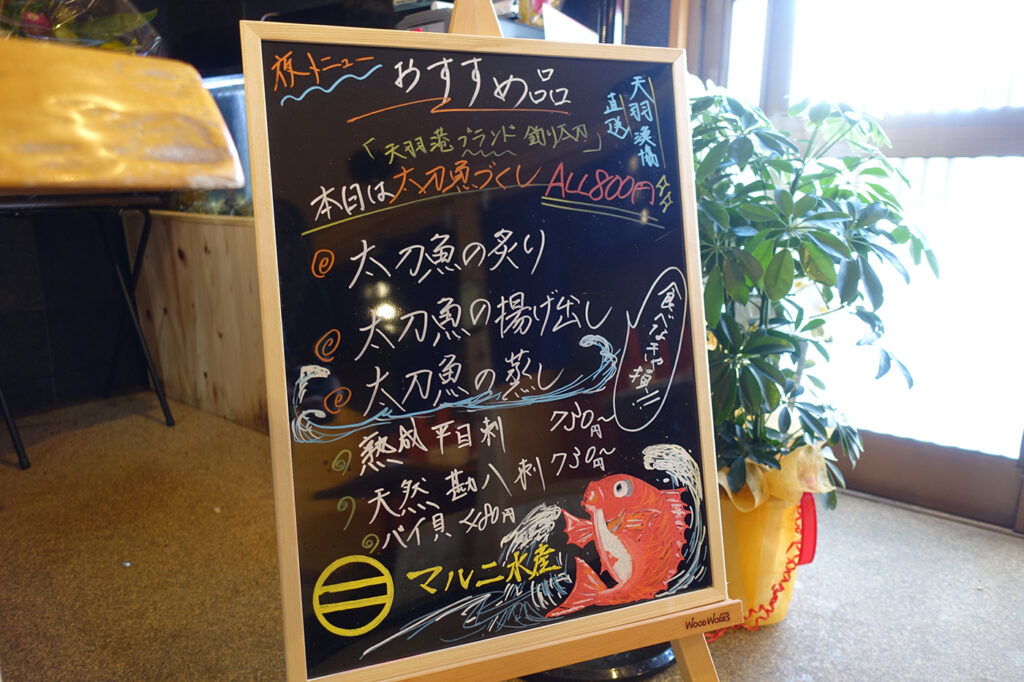 夜メニュー
おすすめ品
天羽漁協
直送
「天羽港ブランド 釣り太刀」
本日は太刀魚づくし ALL800円
太刀魚の炙り
太刀魚の揚げ出し
太刀魚の蒸し
食べなきゃ損!!
熟成 平目刺 730円〜
天然 勘八刺 730円〜
バイ貝 480円
マルニ水産
WOODWORKS